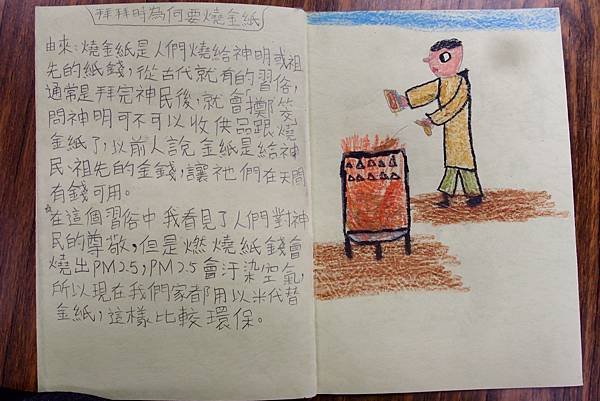 拜拜時為何要燒金紙
由來：燒金紙是人們燒給神明或祖
先的紙錢，從古代就有的習俗，
通常是拜完神民後，就會擲筊
問神明可不可以收供品跟燒
金紙了，以前人說金紙是給神
民、祖先的金錢，讓祂們在天間
有錢可用。
在這個習俗中我看見了人們對神
民的尊敬，但是燃燒紙錢會
燒出PM2.5，PM2.5會汙染空氣，
所以現在我們家都用以米代替
金紙，這樣比較環保。